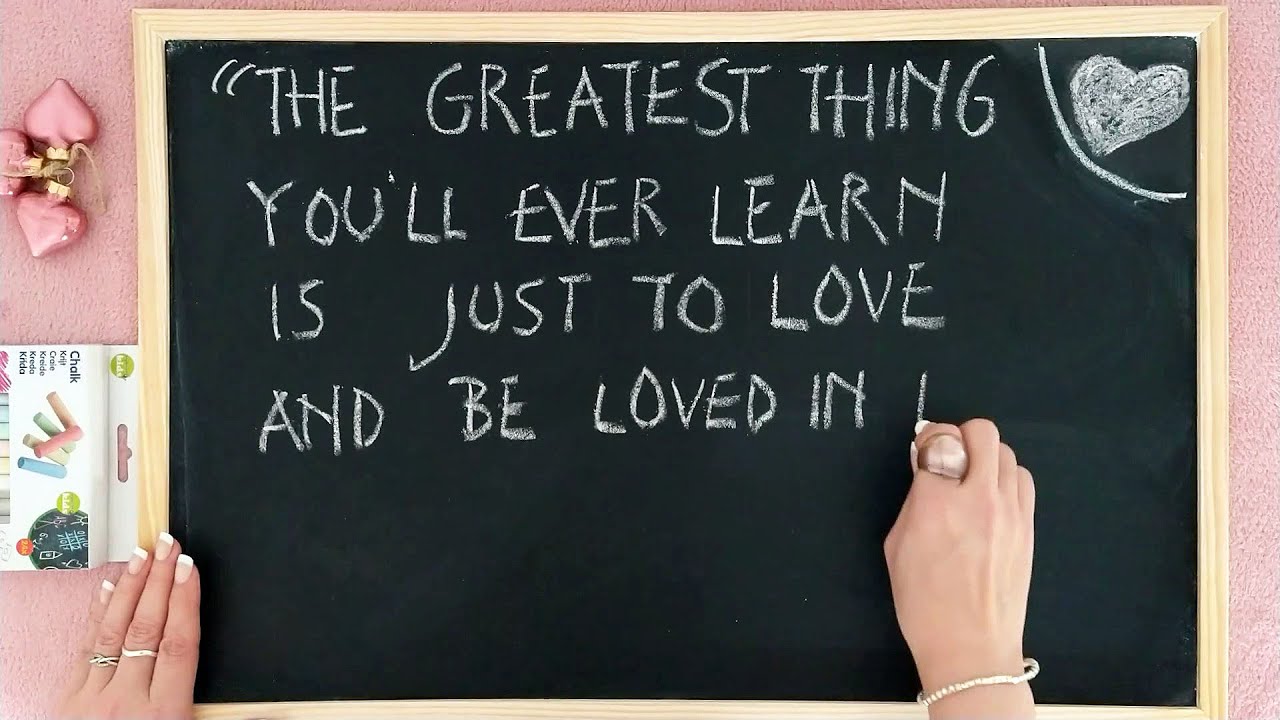 “THE GREATEST THING
YOU'LL EVER LEARN
IS JUST TO LOVE
AND BE LOVED IN
Chalk
Krijt
Craie
Kreide
Kreda
Krida
kids
kids